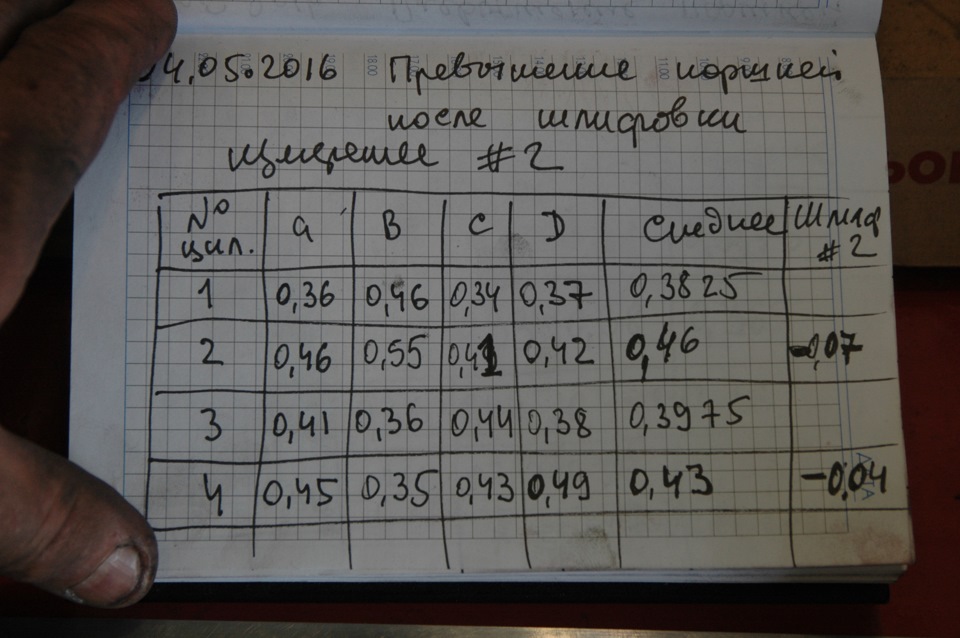 4.05.2016 Превышение поршней
после шлифовки
измерение #2
№ цил. a B C D Среднее Шлиф #2
1 0,36 0,46 0,34 0,37 0,3825
2 0,46 0,55 0,41 0,42 0,46 -0,07
3 0,41 0,36 0,44 0,38 0,3975
4 0,45 0,35 0,43 0,49 0,43 -0,04